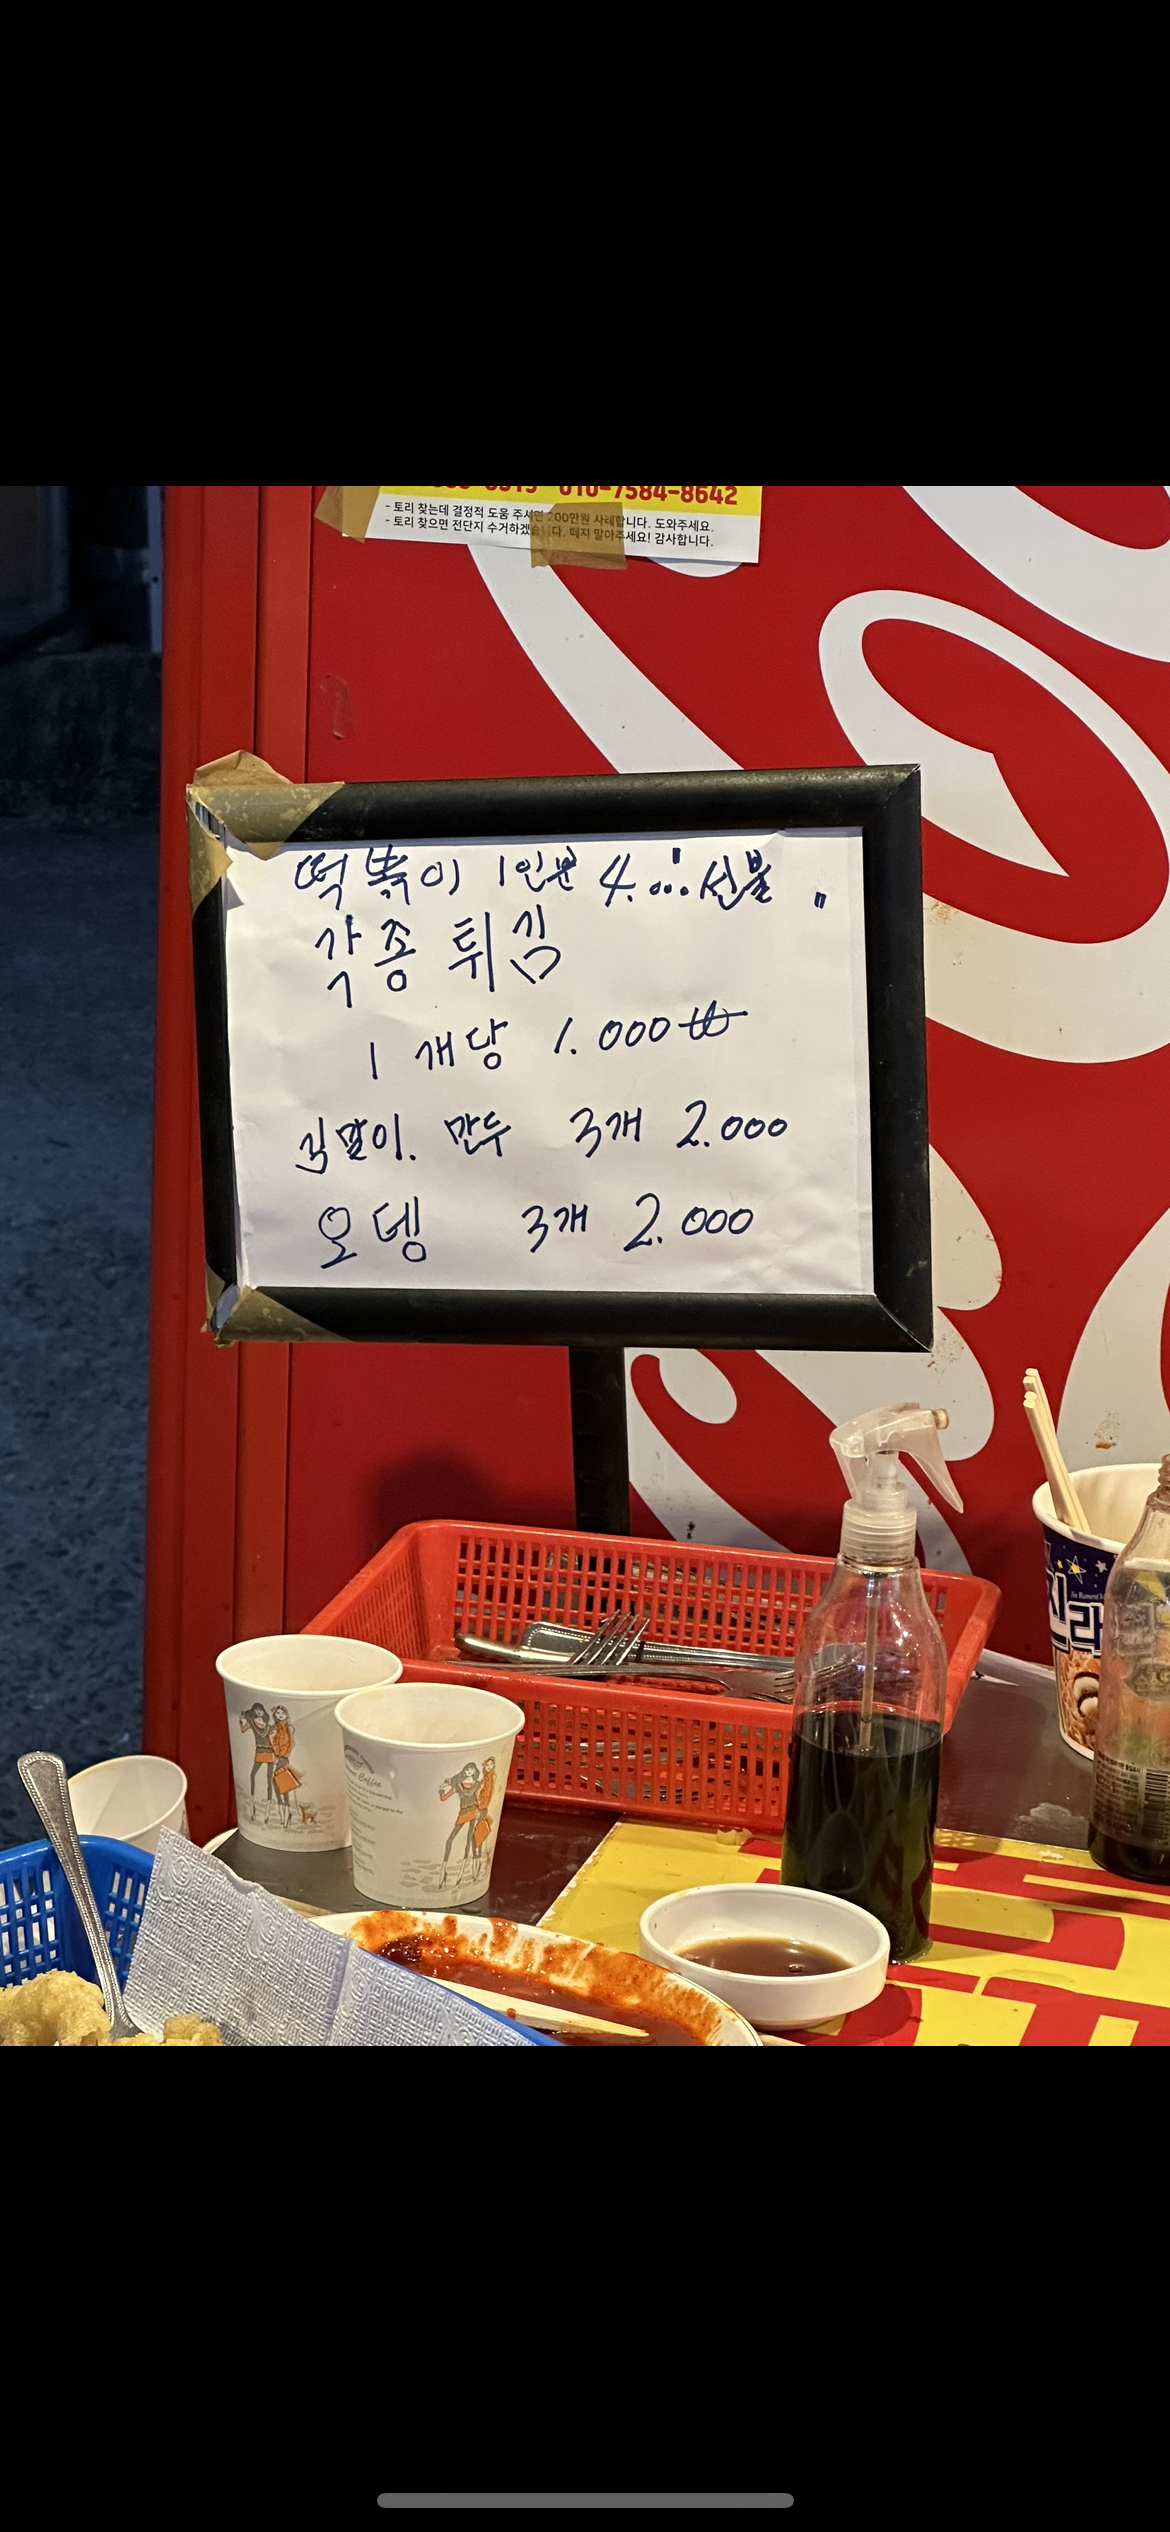 010-7584-8642
- 토리 찾는데 결정적 도움 주시면 200만원 사례합니다. 도와주세요.
- 토리 찾으면 전단지 수거하겠습니다. 떼지 말아주세요! 감사합니다.
떡볶이 1인분 4.000 선불
각종 튀김
1 개당 1.000₩
김말이. 만두 3개 2.000
오뎅 3개 2.000
진라
Coffee